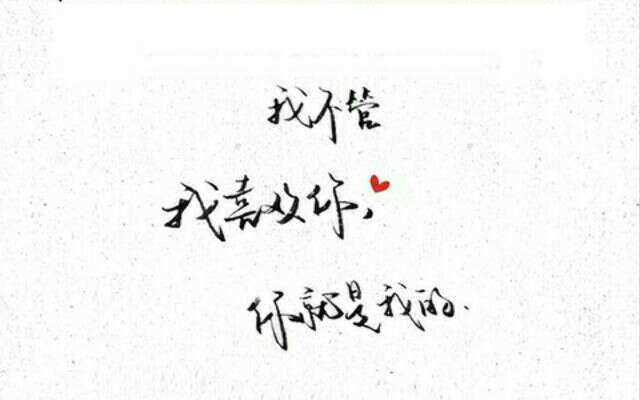 我不管
我喜欢你，
你就是我的.